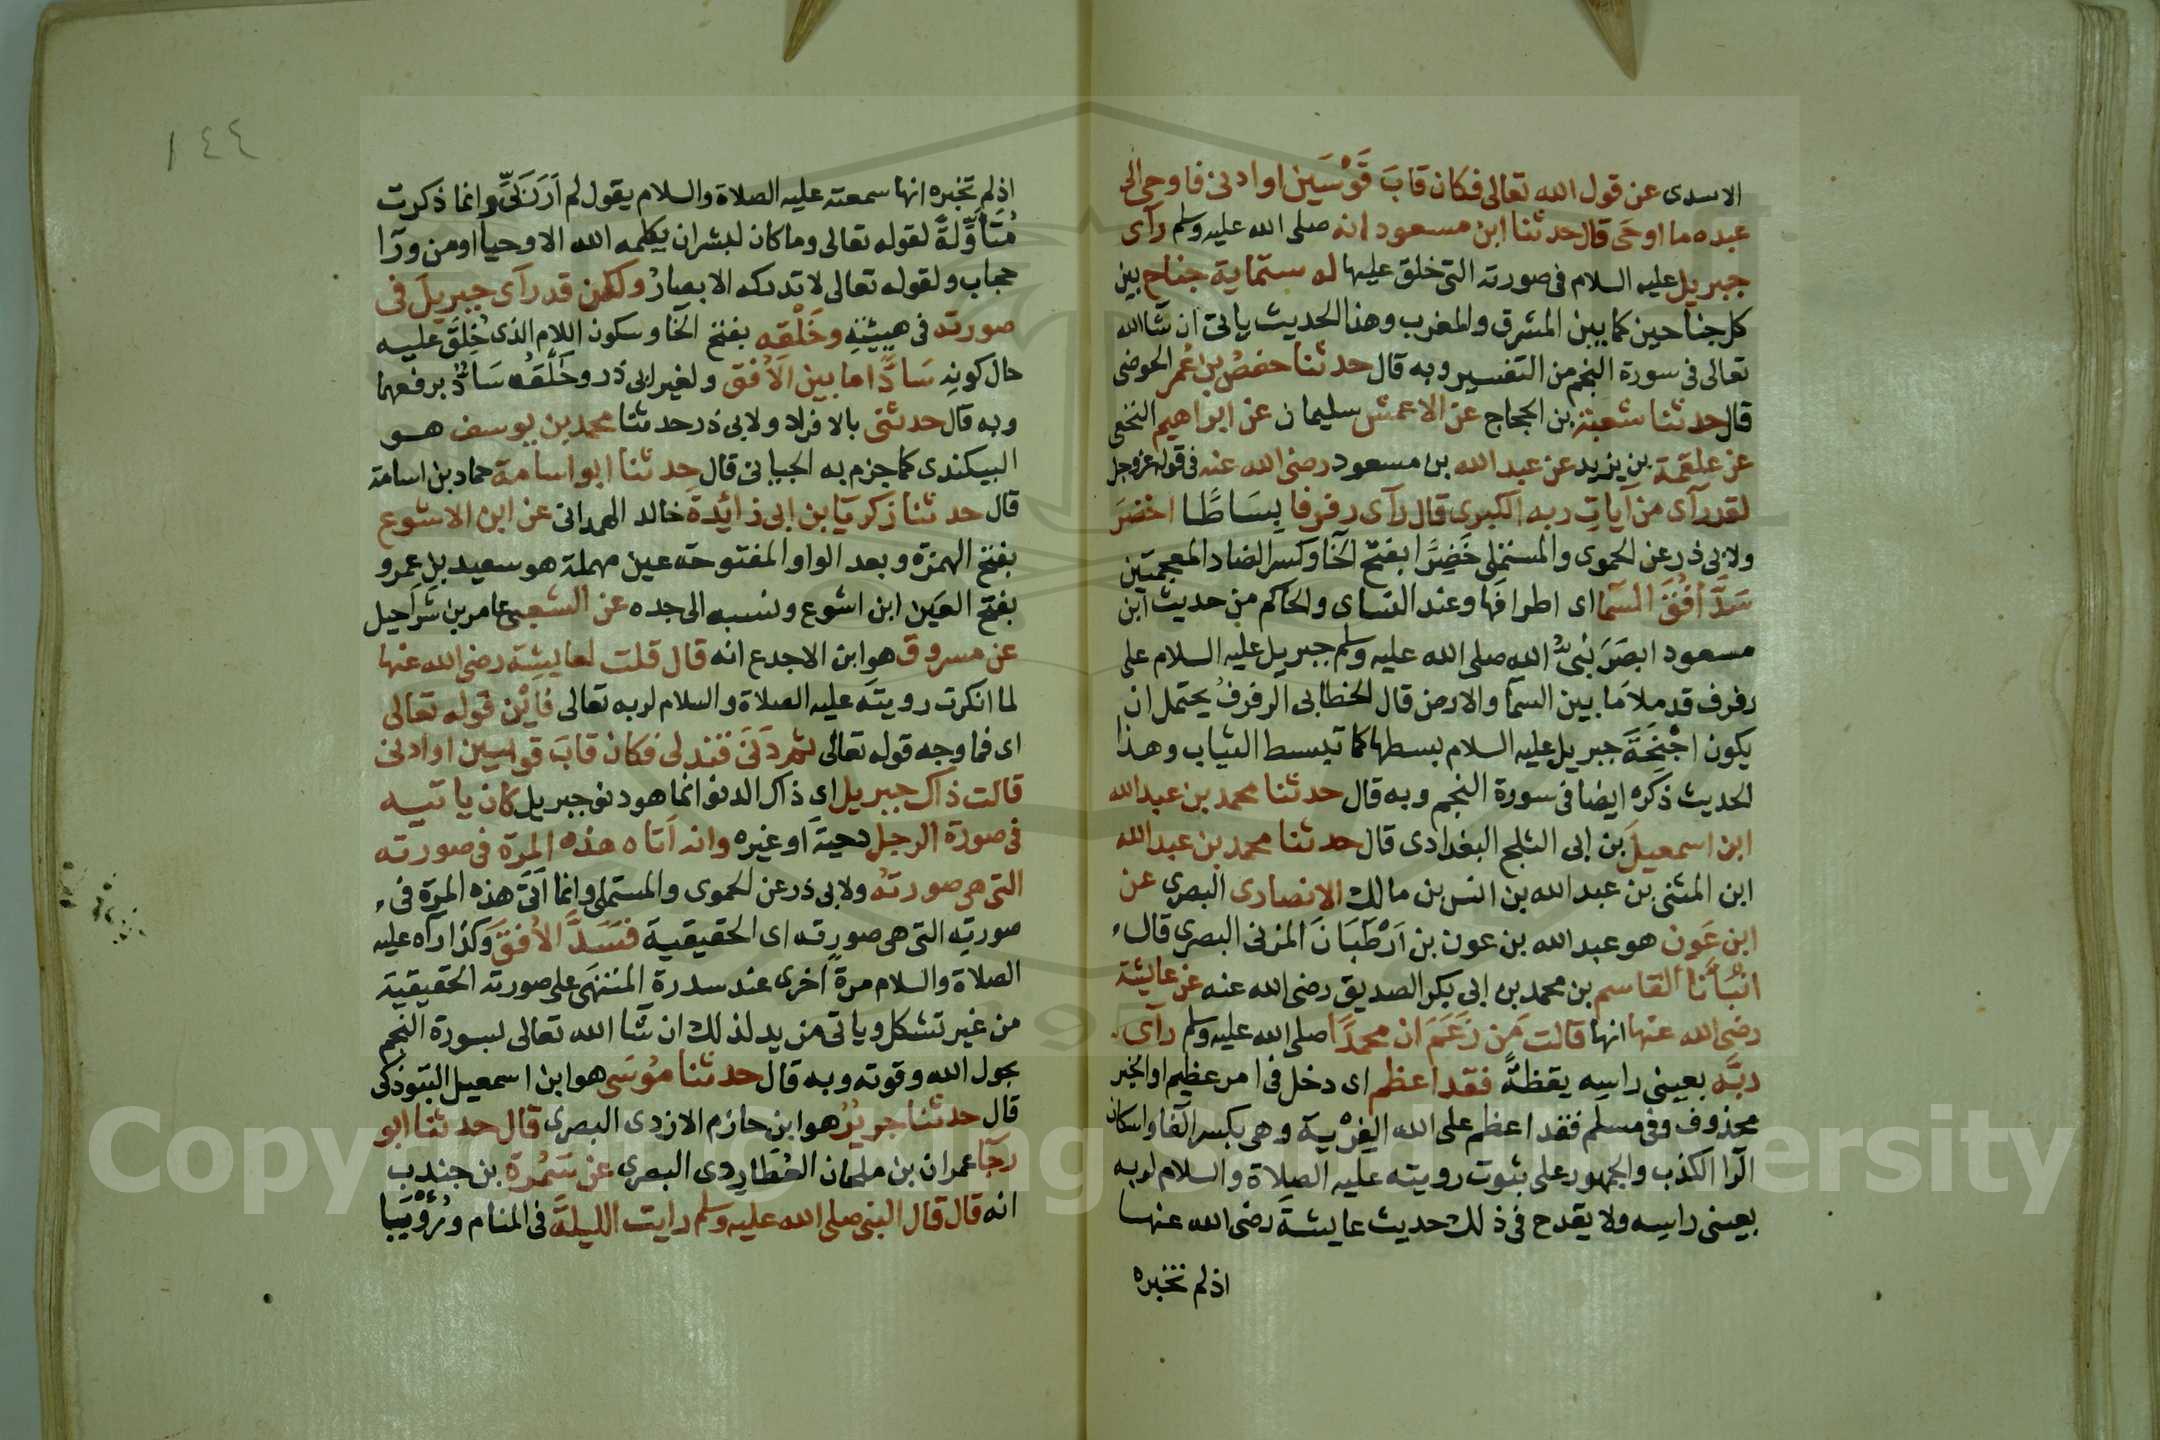 الاسدى عن قول الله تعالى فكان قابَ قَوْسَين او ادنى فاوحى الى
عبده ما اوحَى قال حدثنا ابن مسعود انه صلى الله عليه وسلم رآى
جبريل عليه السلام فى صورته التى خلق عليها له ستماية جناح بين
كل جناحين كما بين المشرق والمغرب وهذا الحديث ياتى ان شآ الله
تعالى فى سورة النجم من التفسير وبه قال حدثنا حفصُ بن عُمر الحوضى
قال حدثنا شعبة بن الحجاج عن الاعمش سليمان عن ابراهيم النخعى
عن علقمة بن يزيد عن عبد الله بن مسعود رضى الله عنه فى قوله عز وجل
لقد رآى من آياتِ ربه الكبرى قال رآى رفرفا بِسَاطًا اخضَرَ
ولابى ذر عن الحموى والمستملى خَضِرًا بفتح الخآ وكسر الضاد المعجمتين
سَدَّ اُفُقَ السّمآ اى اطرافَها وعند النساى والحاكم من حديث ابن
مسعود ابصَرَ نَبىُّ الله صلى الله عليه وسلم جبريل عليه السلام على
رفرف قد ملا مَا بين السمآ والارض قال الخطابى الرفرفُ يحتمل ان
يكون اجْنِحَةَ جبريل عليه السلام بسطها كما تبسط الثياب وهذا
الحديث ذكره ايضا فى سورة النجم وبه قال حدثنا محمد بن عبد الله
ابن اسمعيلَ بن ابى الثلج البغدادى قال حدثنا محمد بن عبد الله
ابن المثنى بن عبد الله بن انس بن مالك الانصارى البصرى عن
ابن عَون هو عبد الله بن عون بن اَرْطَبَانَ المزنى البصرى قال
انبُأنَا القاسم بن محمد بن ابى بكر الصديق رضى الله عنه عن عايشة
رضى الله عنها انها قالت مَن زَعَمَ ان محمدًا صلى الله عليه وسلم رآى
ربَّه بعينى راسِه يقظةً فقد اعظم اى دخل فى امر عظيم او الخبر
محذوف وفى مسلم فقد اعظم على الله الفِرْيةَ وهى بكسر الفآ واسكان
الرآ الكذب والجمهور على ثبوت رويته عليه الصلاة والسلام لربه
بعينى راسِه ولا يقدح فى ذلك حديث عايشةَ رضى الله عنها
اذلم تخبره
١٤٤
اذلم تخبره انها سمعته عليه الصلاة والسلام يقول لم اَرَ رَبِّى وانما ذكرت
مُتَأوِّلَةً لقوله تعالى وما كان لبشر ان يكلمه الله الا وحيا او من ورآ
حجاب ولقوله تعالى لا تدركه الابصارُ ولكن قد رآى جبريلَ فى
صورته فى هيئتِهِ وخَلْقه بفتح الخآ وسكون اللام الذى خُلِقَ عليه
حال كونِه سَادًّا ما بين الاُفق ولغير ابى ذر وخَلْقُه سَادٌّ برفعهما
وبه قال حدثنى بالافراد ولابى ذر حدثنا محمد بن يوسف هو
البيكندى كما جزم به الجيانى قال حدثنا ابو اسامة حماد بن اسامة
قال حدثنا زكريّا بن ابى زائدة خالد الهمدانى عن ابن الاشوع
بفتح الهمزة وبعد الواو المفتوحة عين مهملة هو سعيد بن عمرو
بفتح العَين ابن اشوع ونسبه الى جده عن الشعبى عامر بن شراحيل
عن مسروق هو ابن الاجدع انه قال قلت لعايشة رضى الله عنها
لما انكرت رويتَه عليه الصلاة والسلام لربه تعالى فاَيْن قوله تعالى
اى فما وجه قوله تعالى ثم دَنَى فتدلى فكان قابَ قوسين او ادنى
قالت ذاك جبريل اى ذاك الدنو انما هو دنو جبريل كان ياتيه
فى صورة الرجل دحيةَ او غيره وانه اَتَاه هذه المرّة فى صورته
التى هى صورته ولابى ذر عن الحموى والمستملى وانما اَتَى هذه المرّة فى
صورتِه التى هى صورتُه اى الحقيقية فسَدَّ الاُفقَ وكذا رآه عليه
الصلاة والسلام مرةً اُخرى عند سدرة المنتهَى على صورته الحقيقية
من غير تشكل وياتى مزيد لذلك ان شآ الله تعالى بسورة النجم
بحول الله وقوته وبه قال حدثنا مُوسَى هو ابن اسمعيل التبوذكى
قال حدثنا جريرُ هو ابن حازم الازدى البصرى قال حدثنا ابو
رجآ عمران بن ملحان العُطاردى البصرى عن سَمُرة بن جندب
انه قال قال النبى صلى الله عليه وسلم رايت الليلةَ فى المنام ورُؤْيَا
Copyright © King Saud University